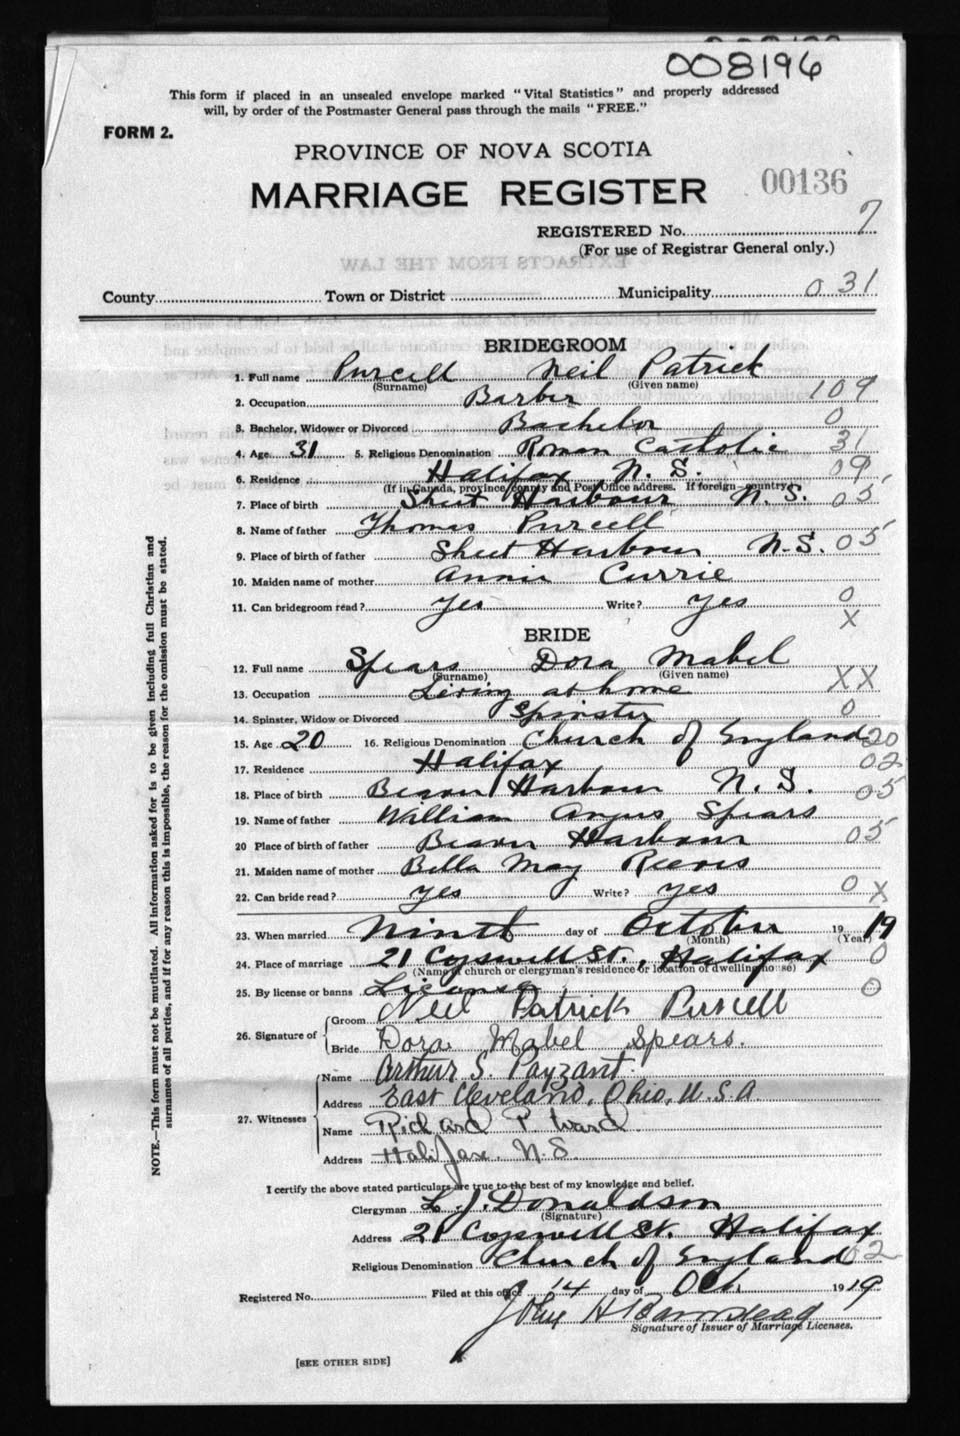 008196
This form if placed in an unsealed envelope marked "Vital Statistics" and properly addressed
will, by order of the Postmaster General pass through the mails "FREE."
FORM 2.
PROVINCE OF NOVA SCOTIA
MARRIAGE REGISTER 00136
REGISTERED No. 7
(For use of Registrar General only.)
County Town or District Municipality 031
BRIDEGROOM
1. Full name Purcell Neil Patrick
(Surname) (Given name)
2. Occupation Barber 109
3. Bachelor, Widower or Divorced Bachelor 0
4. Age 31 5. Religious Denomination Roman Catholic 31
6. Residence Halifax N. S. 09
(If in Canada, province county and Post Office address. If foreign—country)
7. Place of birth Sheet Harbour N. S. 05
8. Name of father Thomas Purcell
9. Place of birth of father Sheet Harbour N.S. 05
10. Maiden name of mother Annie Currie
11. Can bridegroom read? Yes Write? Yes 0
X
BRIDE
12. Full name Spears Dora Mabel
(Surname) (Given name)
13. Occupation Living at home XX
14. Spinster, Widow or Divorced Spinster 0
15. Age 20 16. Religious Denomination Church of England 20
17. Residence Halifax 02
18. Place of birth Beaver Harbour N. S. 05
19. Name of father William Angus Spears
20 Place of birth of father Beaver Harbour 05
21. Maiden name of mother Bella May Reeves
22. Can bride read? yes Write? yes 0 X
23. When married Ninth day of October 19 19
(Month) (Year)
24. Place of marriage 21 Cogswell St., Halifax 0
(Name of church or clergyman's residence or location of dwelling house)
25. By license or banns License 0
26. Signature of Groom Neil Patrick Purcell
Bride Dora Mabel Spears.
27. Witnesses Name Arthur S. Payzant.
Address East Cleveland, Ohio, U.S.A.
Name Richard P. Ward.
Address Halifax. N.S.
I certify the above stated particulars are true to the best of my knowledge and belief.
Clergyman L. J. Donaldson
(Signature)
Address 21 Cogswell St. Halifax
Religious Denomination Church of England 02
Registered No. Filed at this office 14 day of Oct. 19 19
John H Barnstead
Signature of Issuer of Marriage Licenses.
[SEE OTHER SIDE]
NOTE.—This form must not be mutilated. All information asked for is to be given including full Christian and
surnames of all parties, and if for any reason this is impossible, the reason for the omission must be stated.